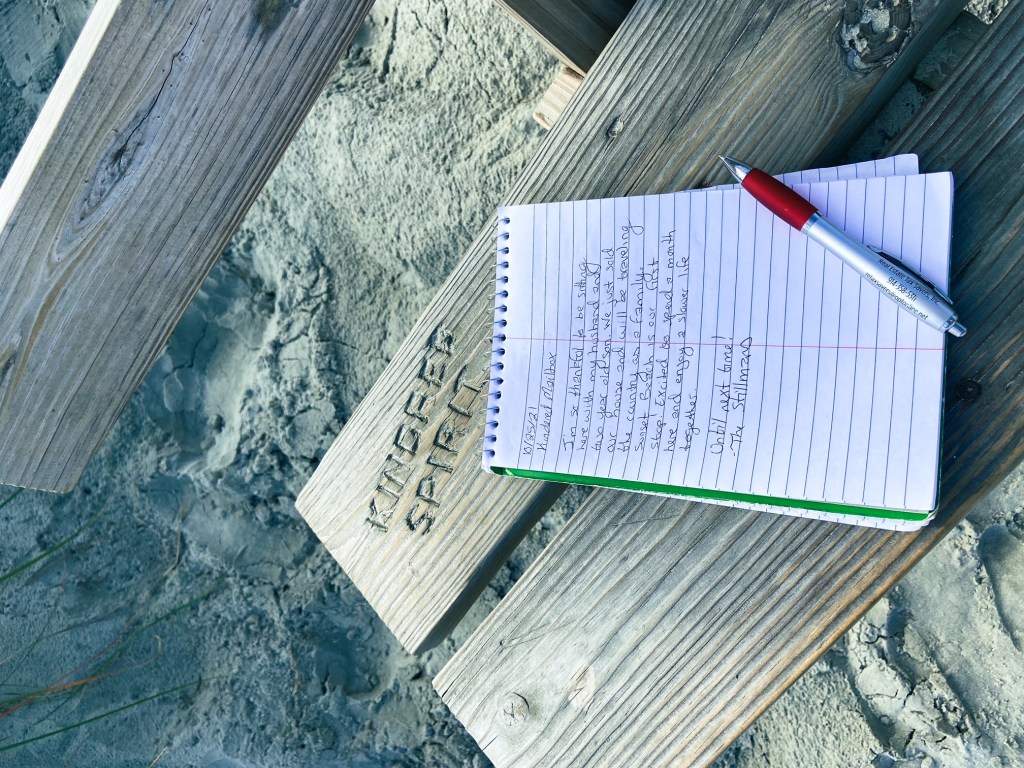 KINDRED
SPIRIT
10/25/21
Kindred Mailbox
I'm so thankful to be sitting
here with my husband and
two year old son. We just sold
our house and will be traveling
the country as a family.
Sunset Beach is our first
stop. Excited to spend a month
here and enjoy a slower life
together.
Until next time!
-The Stillmans
Real Estate Tax Service, Inc.